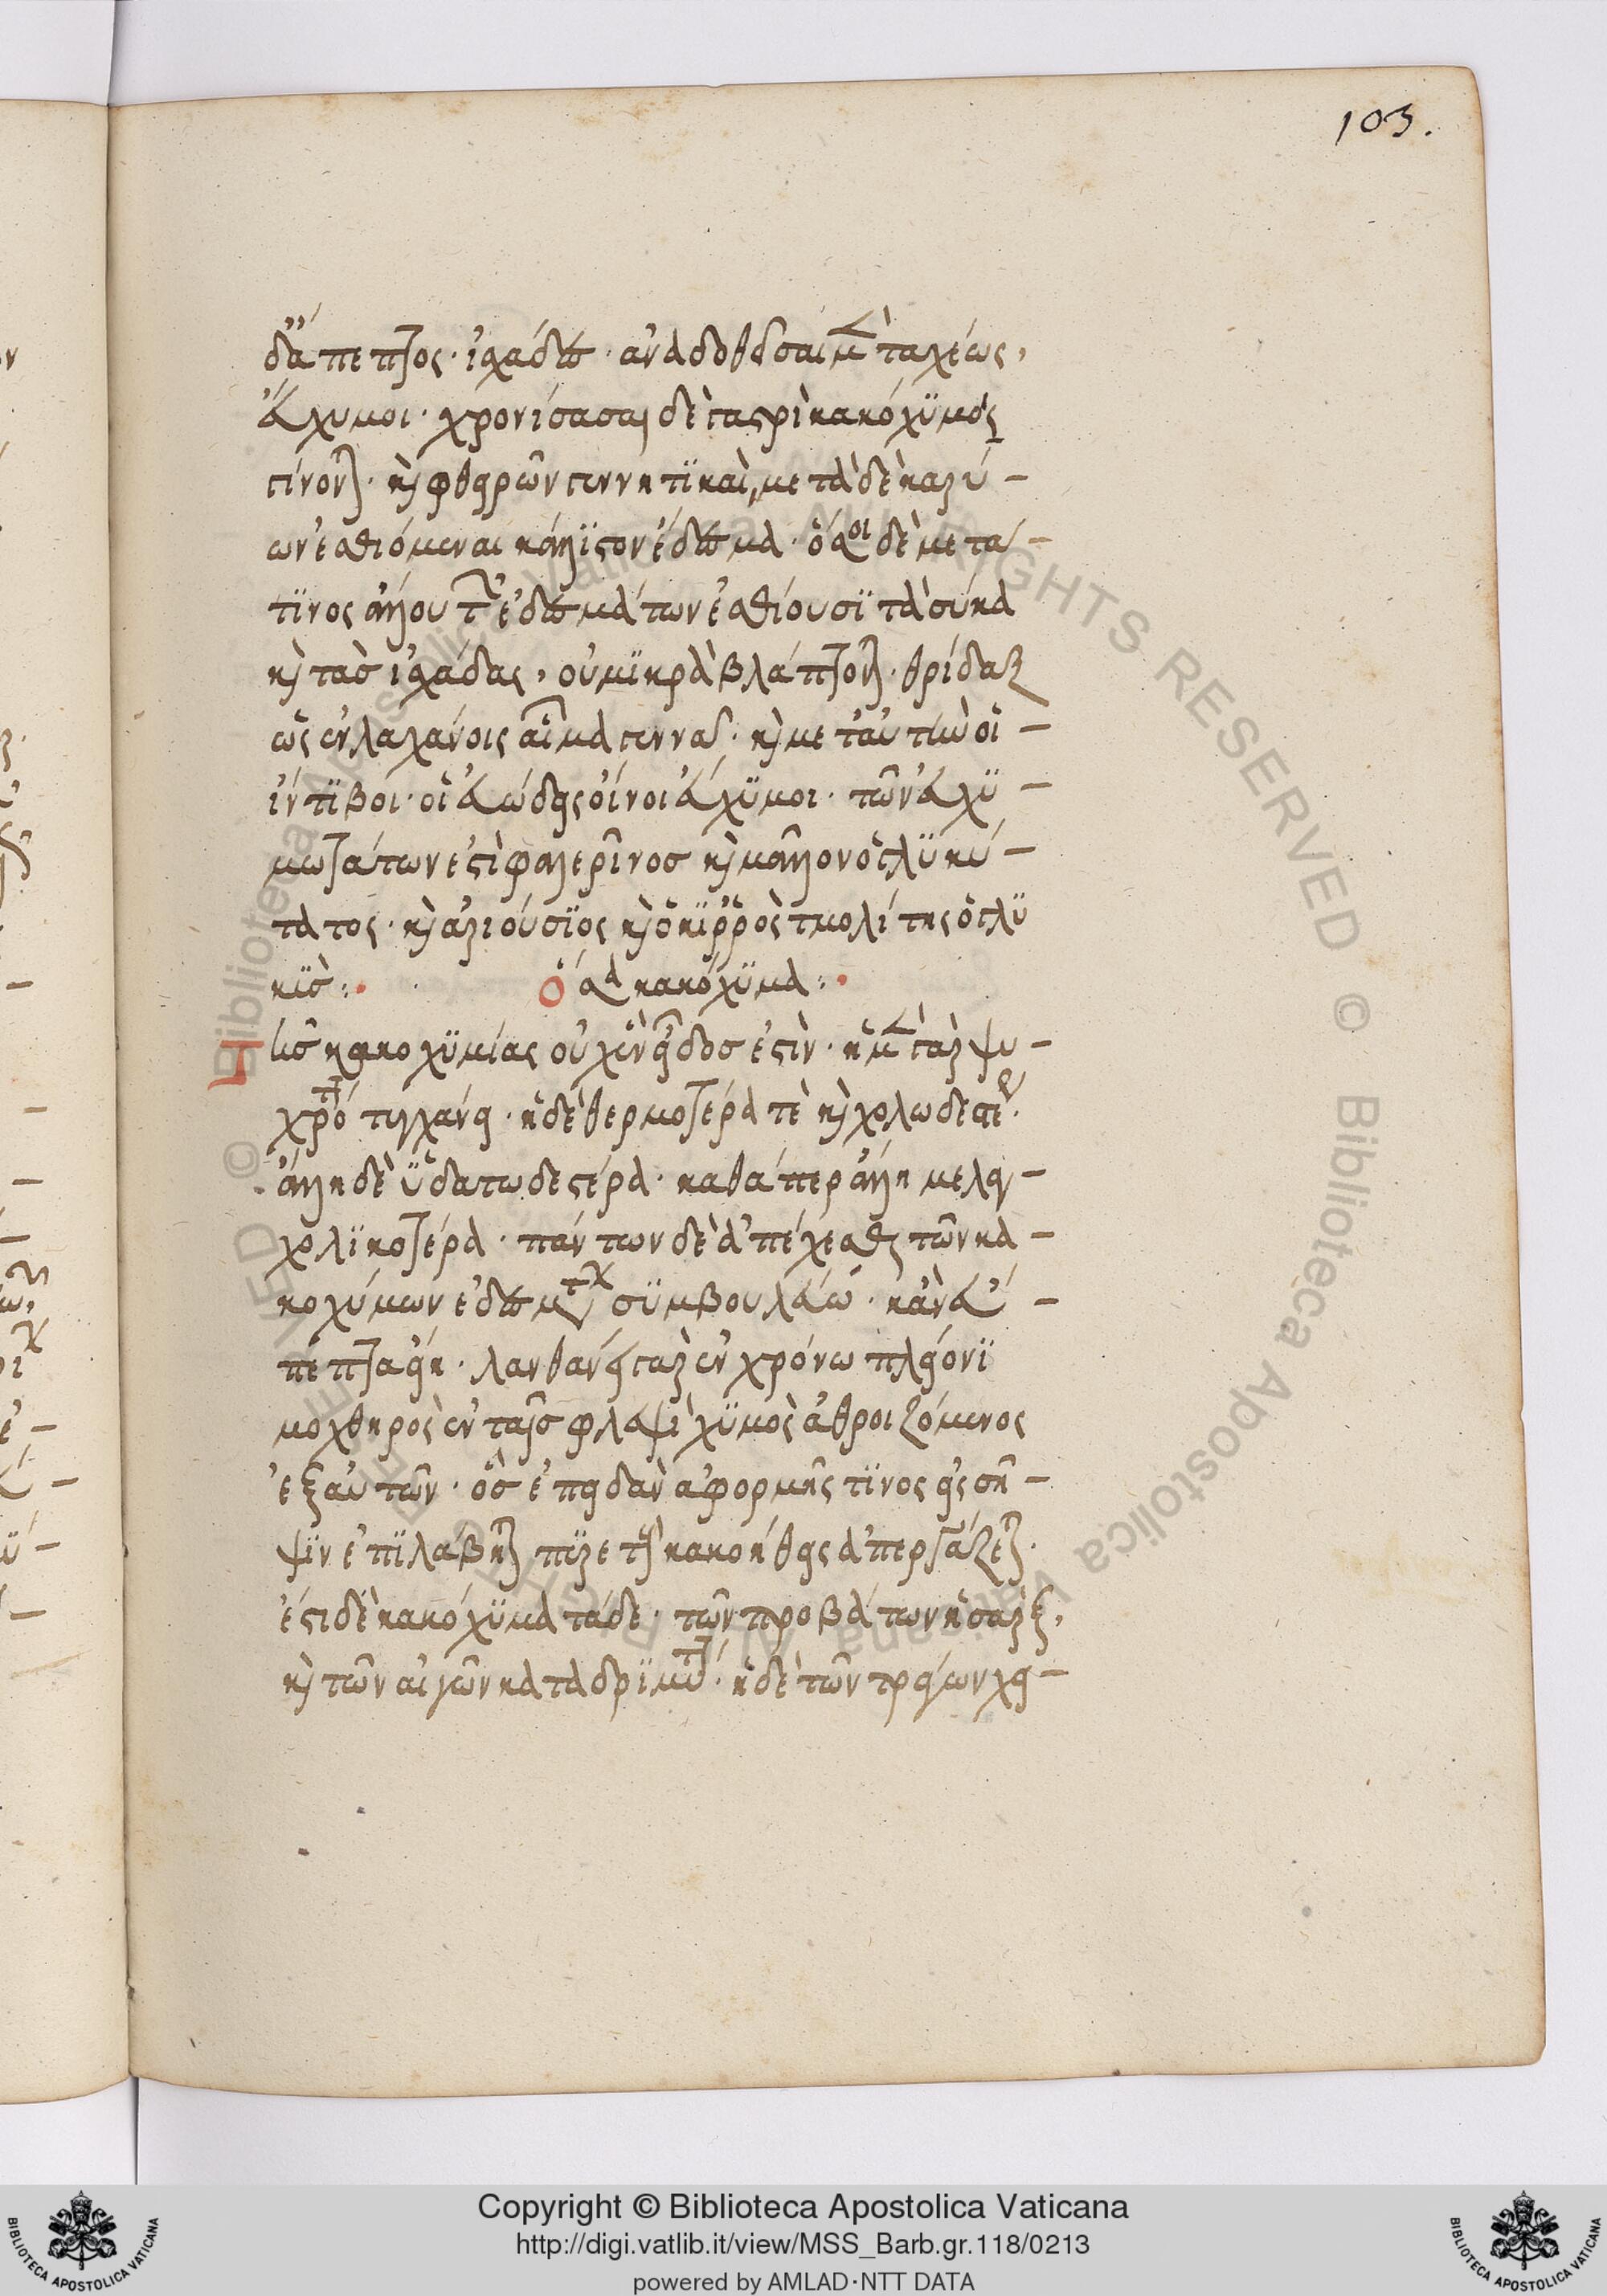 δ' ἄπεπτος· ἰσχάδες· ἀναδοθεῖσαι μὲν ταχέως,
εὔχυμοι· χρονίσασαι δὲ γαστρὶ κακόχϋμός
γίνονται· καὶ φθειρῶν γεννητϊκαὶ, μετὰ δὲ καρύ-
ων ἐσθιόμεναι κάλλϊστον ἔδεσμα· ὅσοι δὲ μετά-
τϊνος ἄλλου τῶν ἐδεσμάτων ἐσθίουσϊ τὰ σύκα
καὶ τὰσ ἰσχάδας, οὐ μϊκρὰ βλάπτονται· θρίδαξ
ὡς ἐν λαχάνοις αἷμα γεννᾶ· καὶ μετ' αὐτὴν οἱ-
ἴντϊβοι· οἱ εὐώδεις οἴνοι εὔχϋμοι· τῶν εὐχϋ-
μωτάτων ἐστὶ φαλερῖνοσ καὶ μᾶλλον ὁ γλϋκύ-
τατος· καὶ ἀριούσϊος καὶ ὁ κϊρρὸς τμολίτης ὁ γλϋ
κϋσ:· ὅσα κακόχϋμα:·
Τῆσ κακοχϋμίας οὐχ ἓν εἶδοσ ἐστὶν· ἡ μὲν γὰρ ψυ-
χροτέρα τυγχάνει· ἡ δὲ θερμοτέρα τὲ καὶ χολωδεστέρα·
ἄλλη δὲ ϋδατωδεστέρα· καθάπερ ἄλλη μελαγ-
χολϊκοτέρα· πάντων δὲ ἀπέχεσθαι τῶν κα-
κοχύμων ἐδεσμάτων σϋμβουλεύω· κἂν εὔ-
πεπτα εἴη· λανθάνει γὰρ ἐν χρόνω πλείονϊ
μοχθηρὸς ἐν ταῖσ φλεψὶ χϋμὸς ἀθροιζόμενος
ἐξ αὐτῶν· ὃσ ἐπειδὰν ἀφορμῆς τϊνος εἰς σῆ-
ψϊν ἐπϊλάβηται πϋρετοὺς κακοήθεις ἀπεργάζεται·
ἔστι δὲ κακόχϋμα τάδε· τῶν προβάτων ἡ σὰρξ,
καὶ τῶν αἰγῶν κατα δρϊμύτητα· ἡ δὲ τῶν τράγων χεί-
103.
Copyright © Biblioteca Apostolica Vaticana
http://digi.vatlib.it/view/MSS_Barb.gr.118/0213
powered by AMLAD·NTT DATA